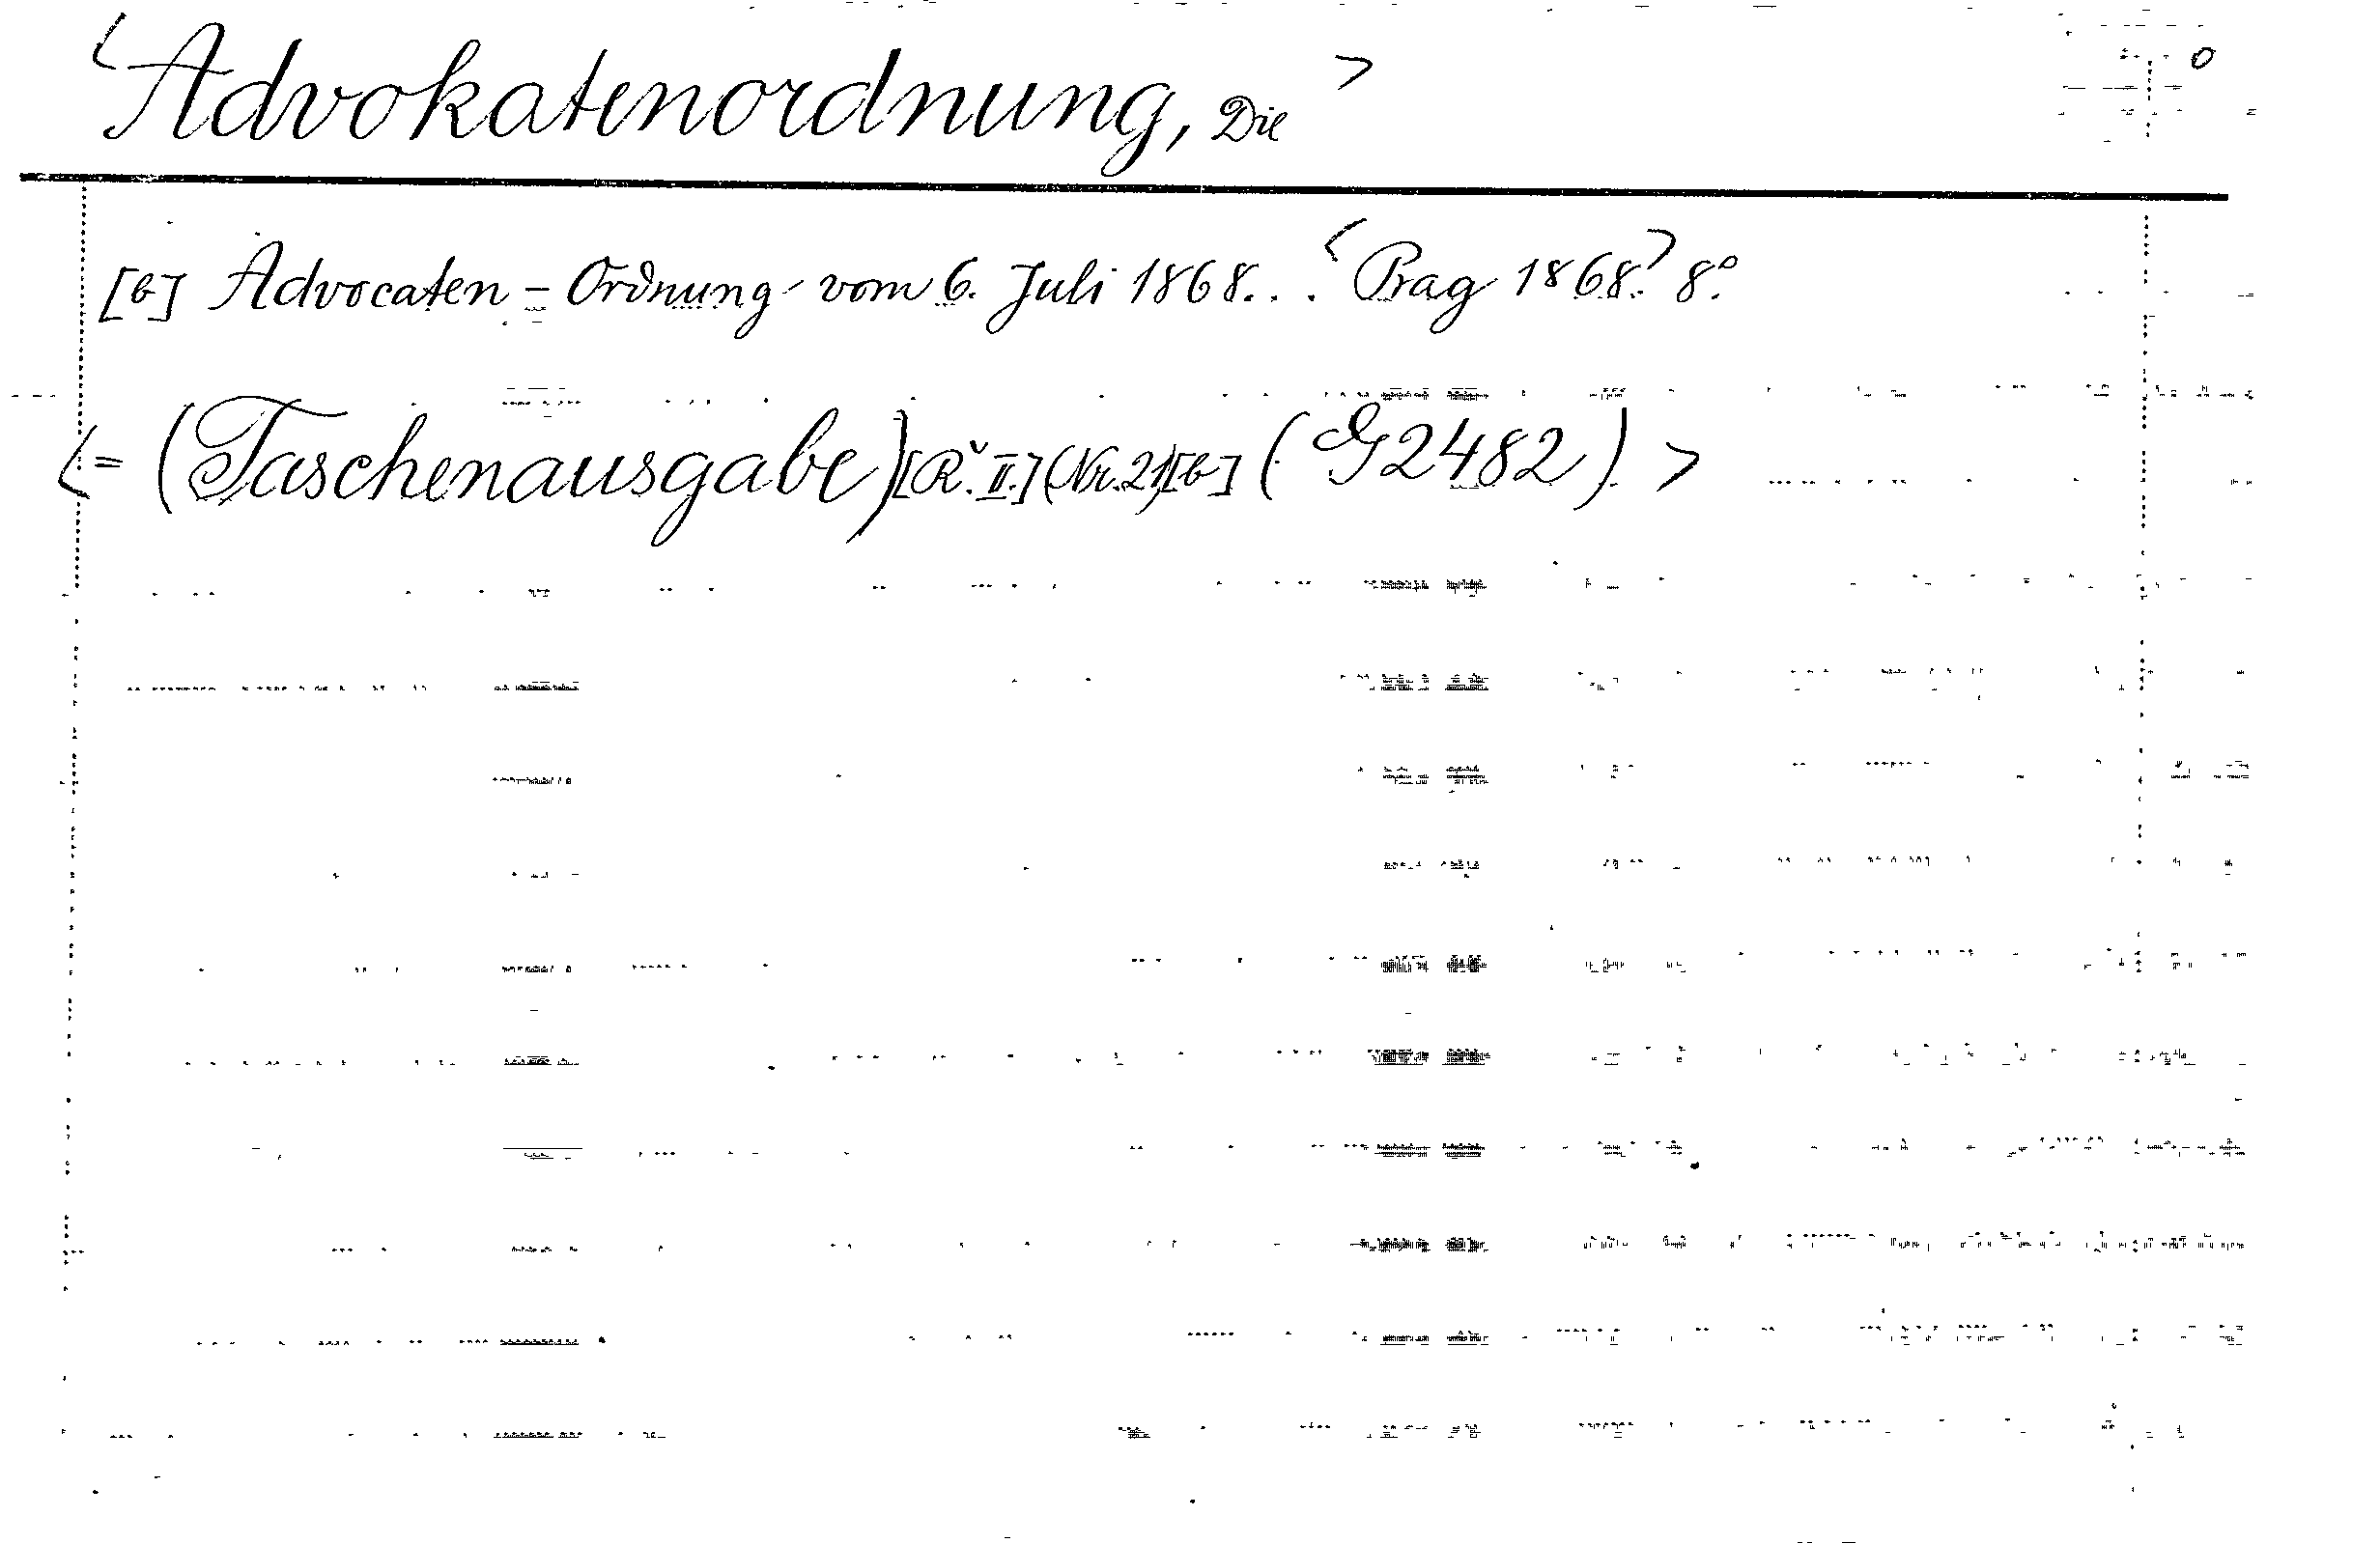 <Advokatenordnung, Die> o
[b] Advocaten-Ordnung vom 6. Juli 1868... <Prag 1868.> 8.°
<= (Taschenausgabe) [Rˇ. II.] (Nr. 21) [b] (G2482) >